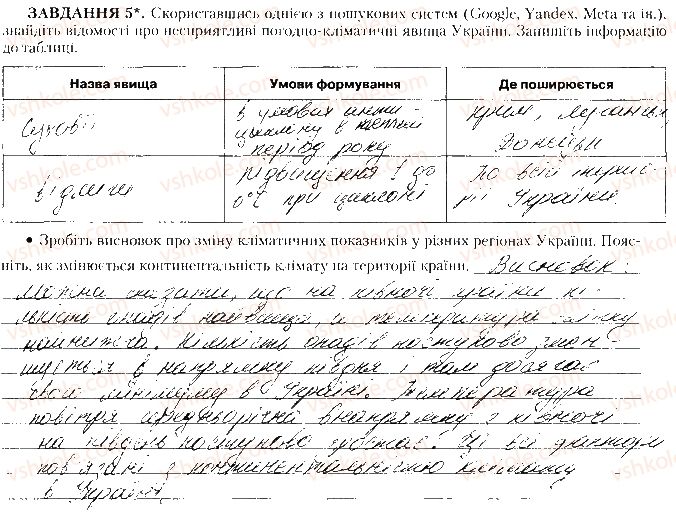 ЗАВДАННЯ 5*. Скориставшись однією з пошукових систем (Google, Yandex, Meta та ін.),
знайдіть відомості про несприятливі погодно-кліматичні явища України. Запишіть інформацію
до таблиці.
Назва явища Умови формування Де поширюється
Суховії
В умовах анти
циклону в теплий
період року
Крим, Луганськ,
Донецьк
Відлиги
Підвищення t до
0° при циклоні
По всій терито-
рії України
• Зробіть висновок про зміну кліматичних показників у різних регіонах України. Пояс-
ніть, як змінюється континентальність клімату на території країни. Висновок:
Можна сказати, що на півночі країни кі-
лькість опадів найвища, а температура
найнижча. Кількість опадів поступово змен
шується в напрямку півдня і там досягає
свого мінімуму в Україні. Температура
повітря середньорічна в напрямку з півночі
на південь поступово зростає. Ці всі фактори
пов'язані з континентальністю клімату
в Україні.
vshkole.com